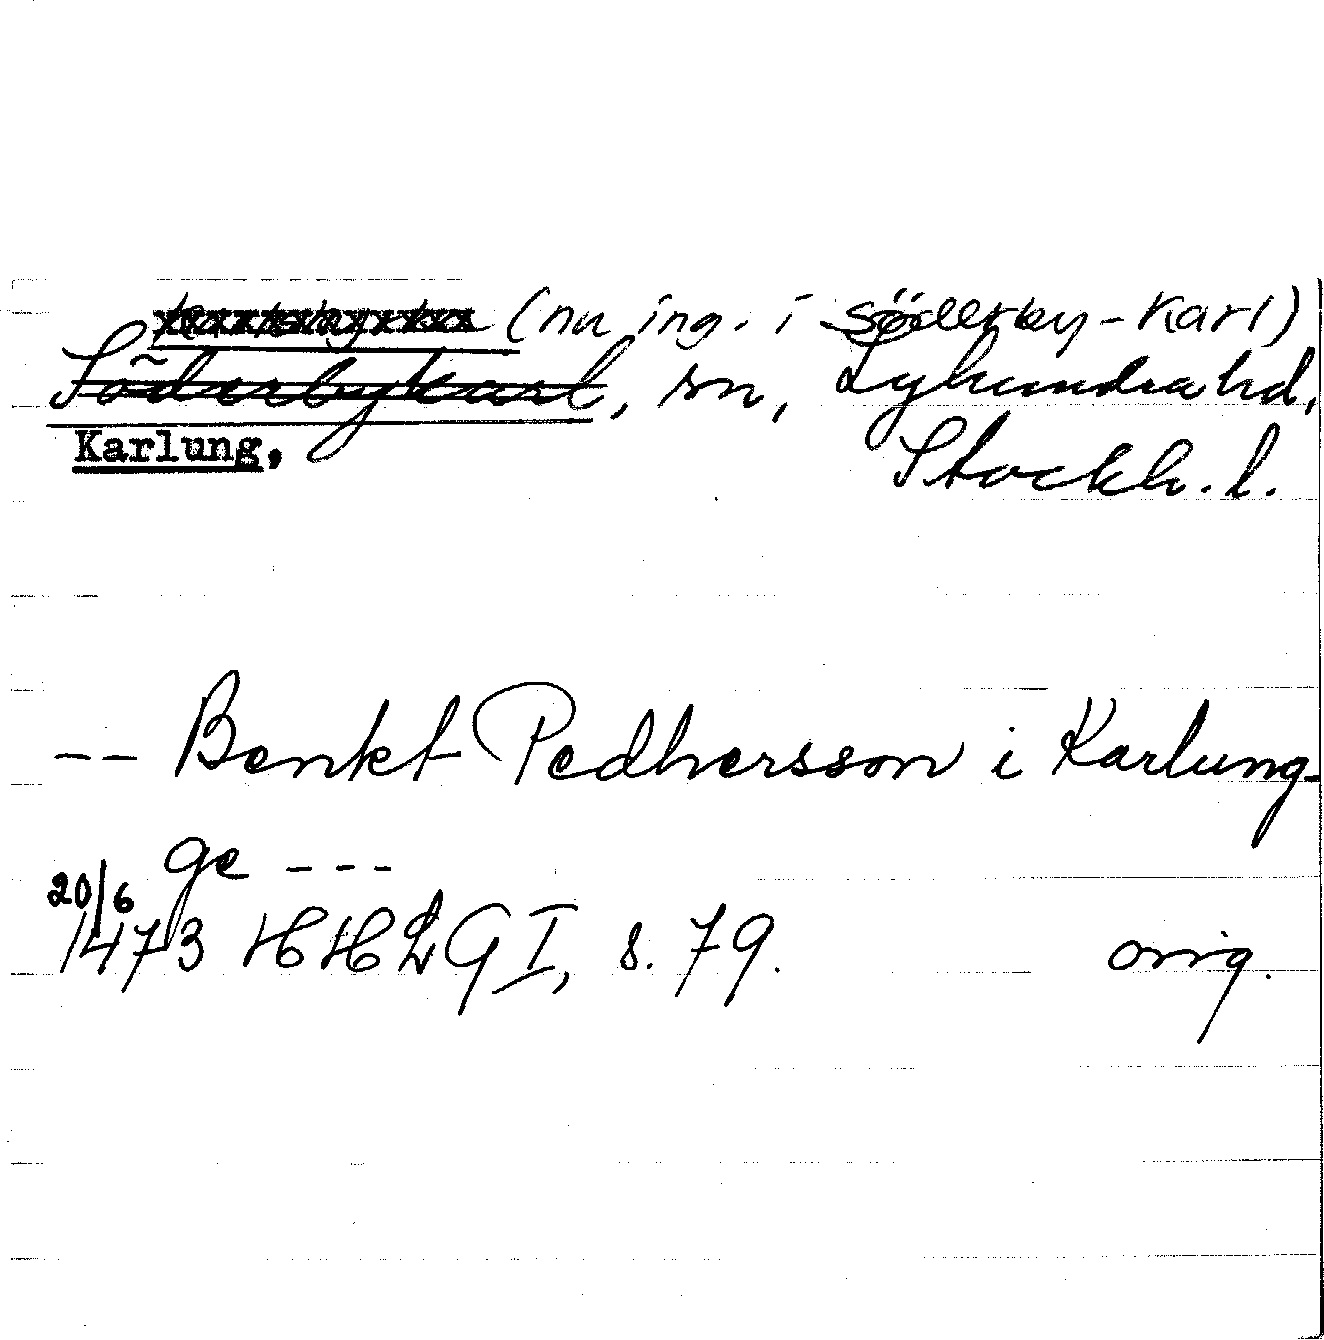 (nu ing. i Söderby-Karl)
Söderbykarl, sn, Lyhundra hd,
Karlung, Stockh. l.
-- Benkt Pedhersson i Karlung-
ge ---
20/6
1473 HHLG I, s. 79. orig.